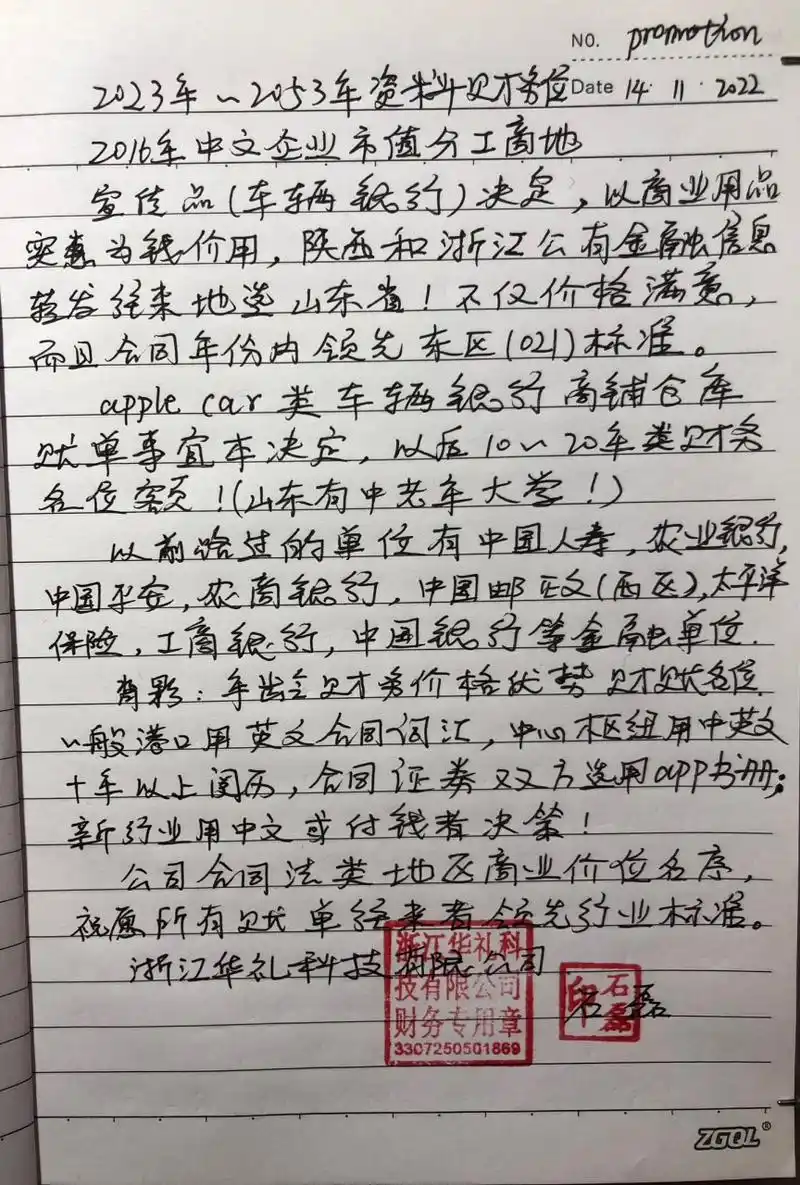 NO. promotion
2023年~2053年资料财务位 Date 14.11.2022
2016年中文企业市值分工商地
宣传品(车辆银行)决定,以商业用品
实惠为钱价用,陕西和浙江公有金融信息
转发往来地选山东省!不仅价格满意,
而且合同年份内领先东区(021)标准。
apple car类车辆银行商铺仓库
账单事宜本决定,以后10~20年类财务
名位额!(山东有中老年大学!)
以前路过的单位有中国人寿,农业银行,
中国平安,农商银行,中国邮政(西区),太平洋
保险,工商银行,中国银行等金融单位.
背影:年出会财务价格优势财账名位.
一般港口用英文合同词汇,中心枢纽用中英文
十年以上阅历,合同证券双方选用app书册;
新行业用中文或付钱者决策!
公司合同法类地区商业价位名序,
祝愿所有账单往来者领先行业标准。
浙江华礼科技有限公司
浙江华礼科
技有限公司
财务专用章
3307250501869
石磊
石磊印
ZGQL®